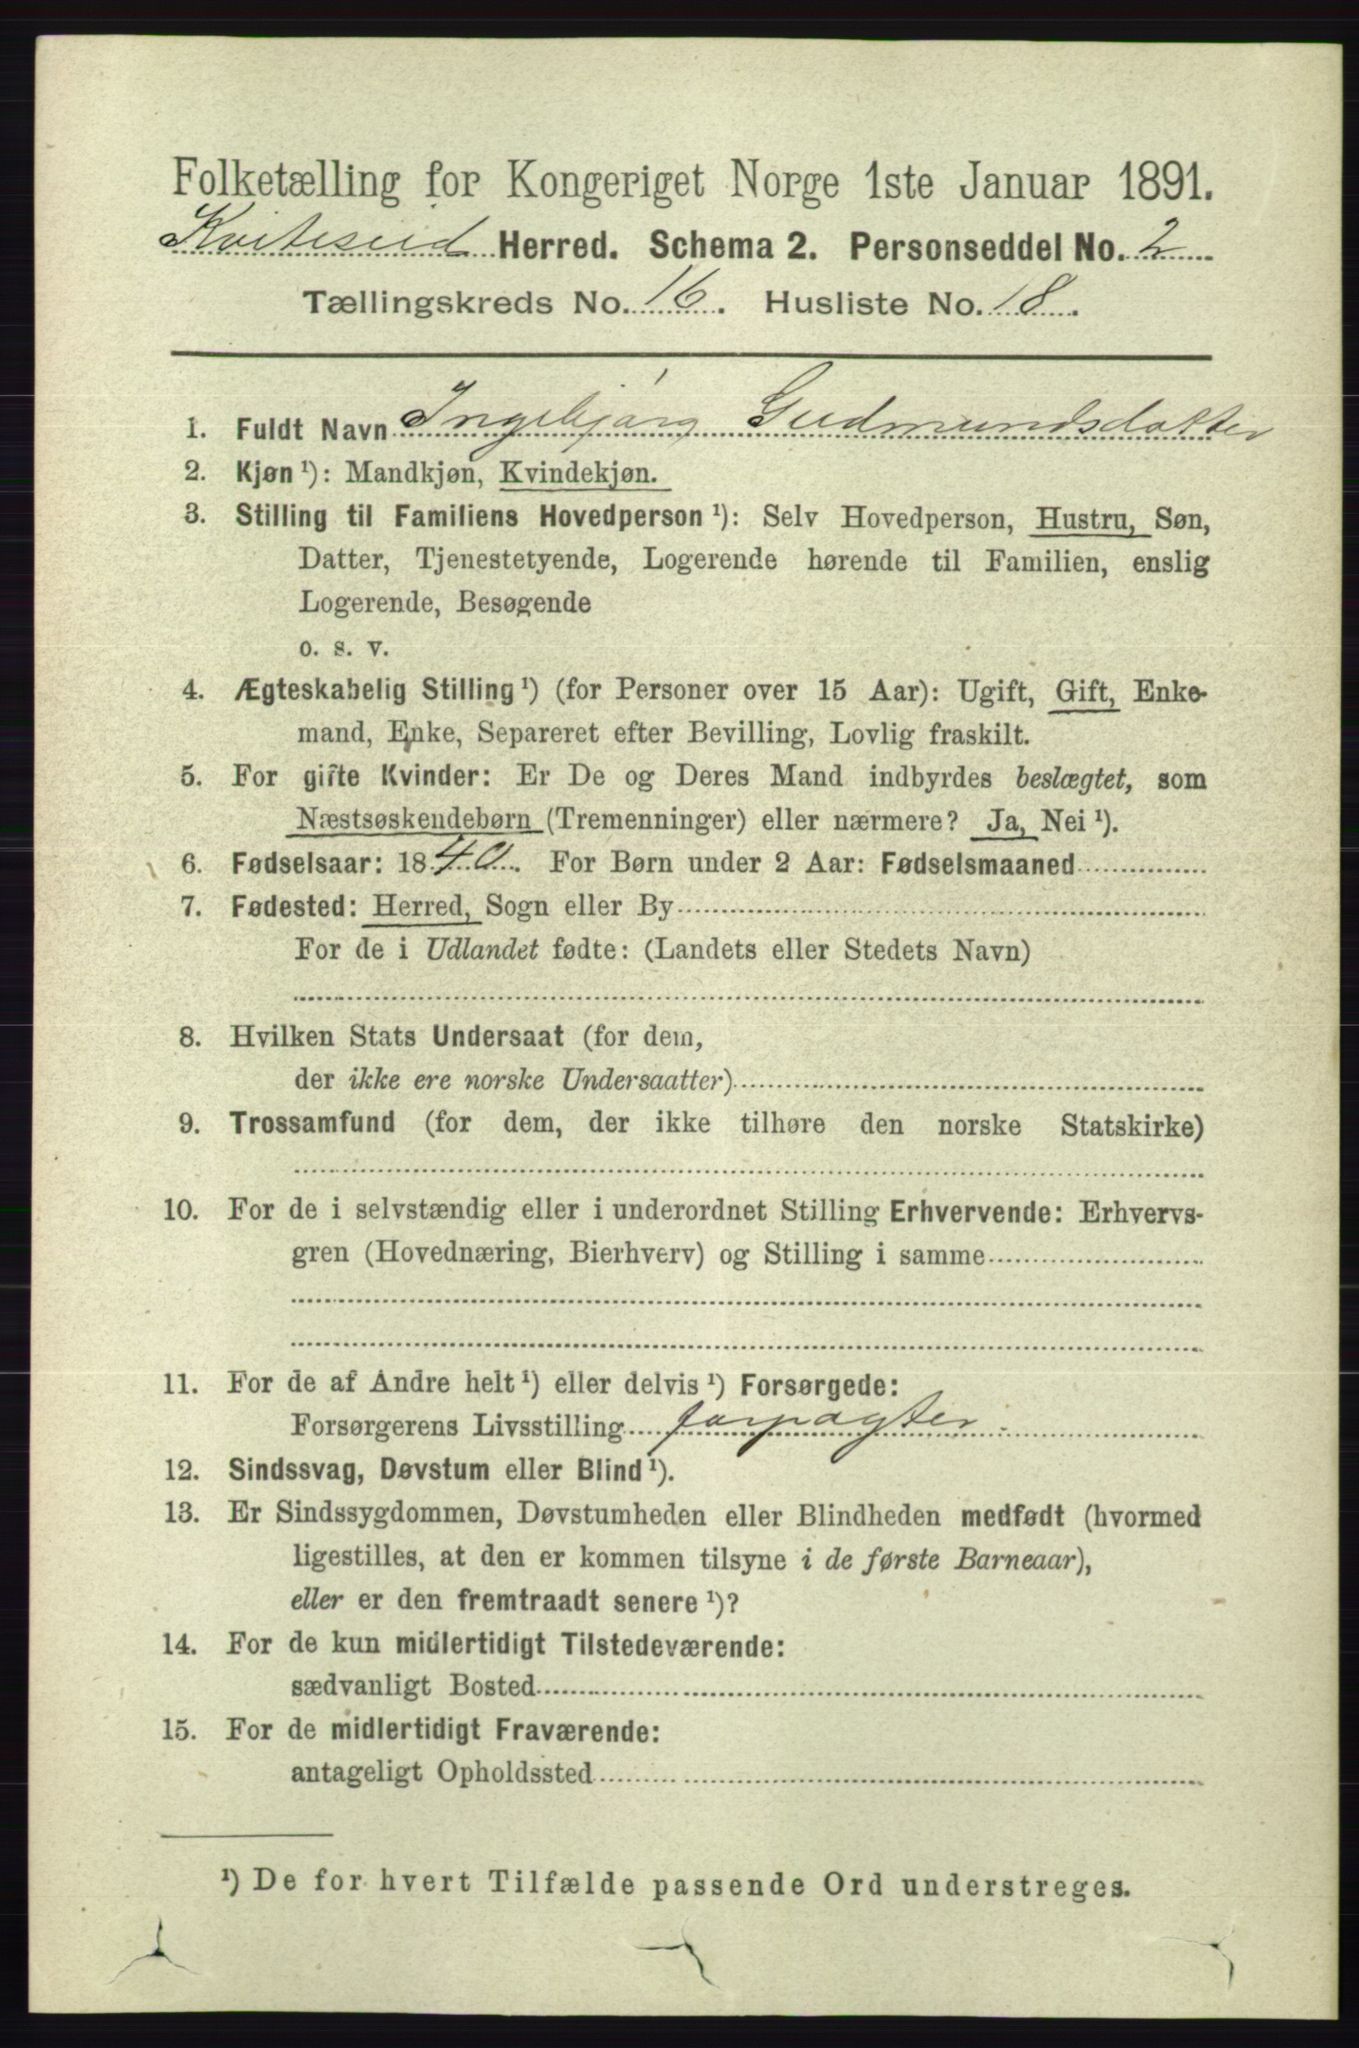 Folketælling for Kongeriget Norge 1ste Januar 1891.
Kviteseid Herred. Schema 2. Personseddel No. 2
Tællingskreds No. 16. Husliste No. 18.
1. Fuldt Navn Ingebjørg Gudmundsdatter
2. Kjøn¹): Mandkjøn, Kvindekjøn.
3. Stilling til Familiens Hovedperson¹): Selv Hovedperson, Hustru, Søn,
Datter, Tjenestetyende, Logerende hørende til Familien, enslig
Logerende, Besøgende
o. s. v.
4. Ægteskabelig Stilling¹) (for Personer over 15 Aar): Ugift, Gift, Enke-
mand, Enke, Separeret efter Bevilling, Lovlig fraskilt.
5. For gifte Kvinder: Er De og Deres Mand indbyrdes beslægtet, som
Næstsøskendebørn (Tremenninger) eller nærmere? Ja, Nei¹).
6. Fødselsaar: 1840. For Børn under 2 Aar: Fødselsmaaned
7. Fødested: Herred, Sogn eller By
For de i Udlandet fødte: (Landets eller Stedets Navn)
8. Hvilken Stats Undersaat (for dem,
der ikke ere norske Undersaatter)
9. Trossamfund (for dem, der ikke tilhøre den norske Statskirke)
10. For de i selvstændig eller i underordnet Stilling Erhvervende: Erhvervs-
gren (Hovednæring, Bierhverv) og Stilling i samme
11. For de af Andre helt¹) eller delvis¹) Forsørgede:
Forsørgerens Livsstilling forpagter.
12. Sindssvag, Døvstum eller Blind¹).
13. Er Sindssygdommen, Døvstumheden eller Blindheden medfødt (hvormed
ligestilles, at den er kommen tilsyne i de første Barneaar),
eller er den fremtraadt senere¹)?
14. For de kun midlertidigt Tilstedeværende:
sædvanligt Bosted
15. For de midlertidigt Fraværende:
antageligt Opholdssted
¹) De for hvert Tilfælde passende Ord understreges.